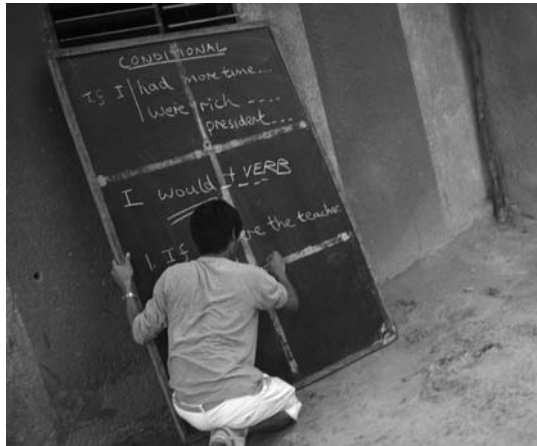 CONDITIONAL
If I had more time...
were rich ----
president ----
I would + VERB
1. If ere the teacher.